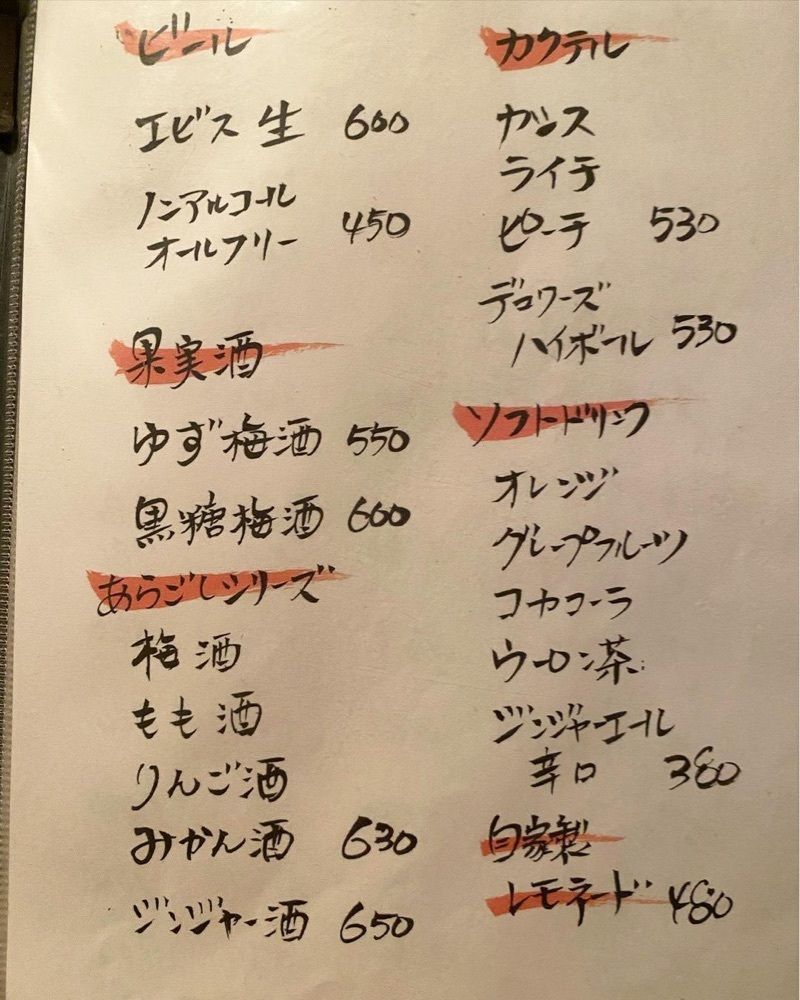 ビール
エビス 生 600
ノンアルコール
オールフリー 450
果実酒
ゆず梅酒 550
黒糖梅酒 600
あらごしシリーズ
梅酒
もも酒
りんご酒
みかん酒 630
ジンジャー酒 650
カクテル
カシス
ライチ
ピーチ 530
デュワーズ
ハイボール 530
ソフトドリンク
オレンジ
グレープフルーツ
コカコーラ
ウーロン茶
ジンジャーエール
辛口 380
自家製
レモネード 480